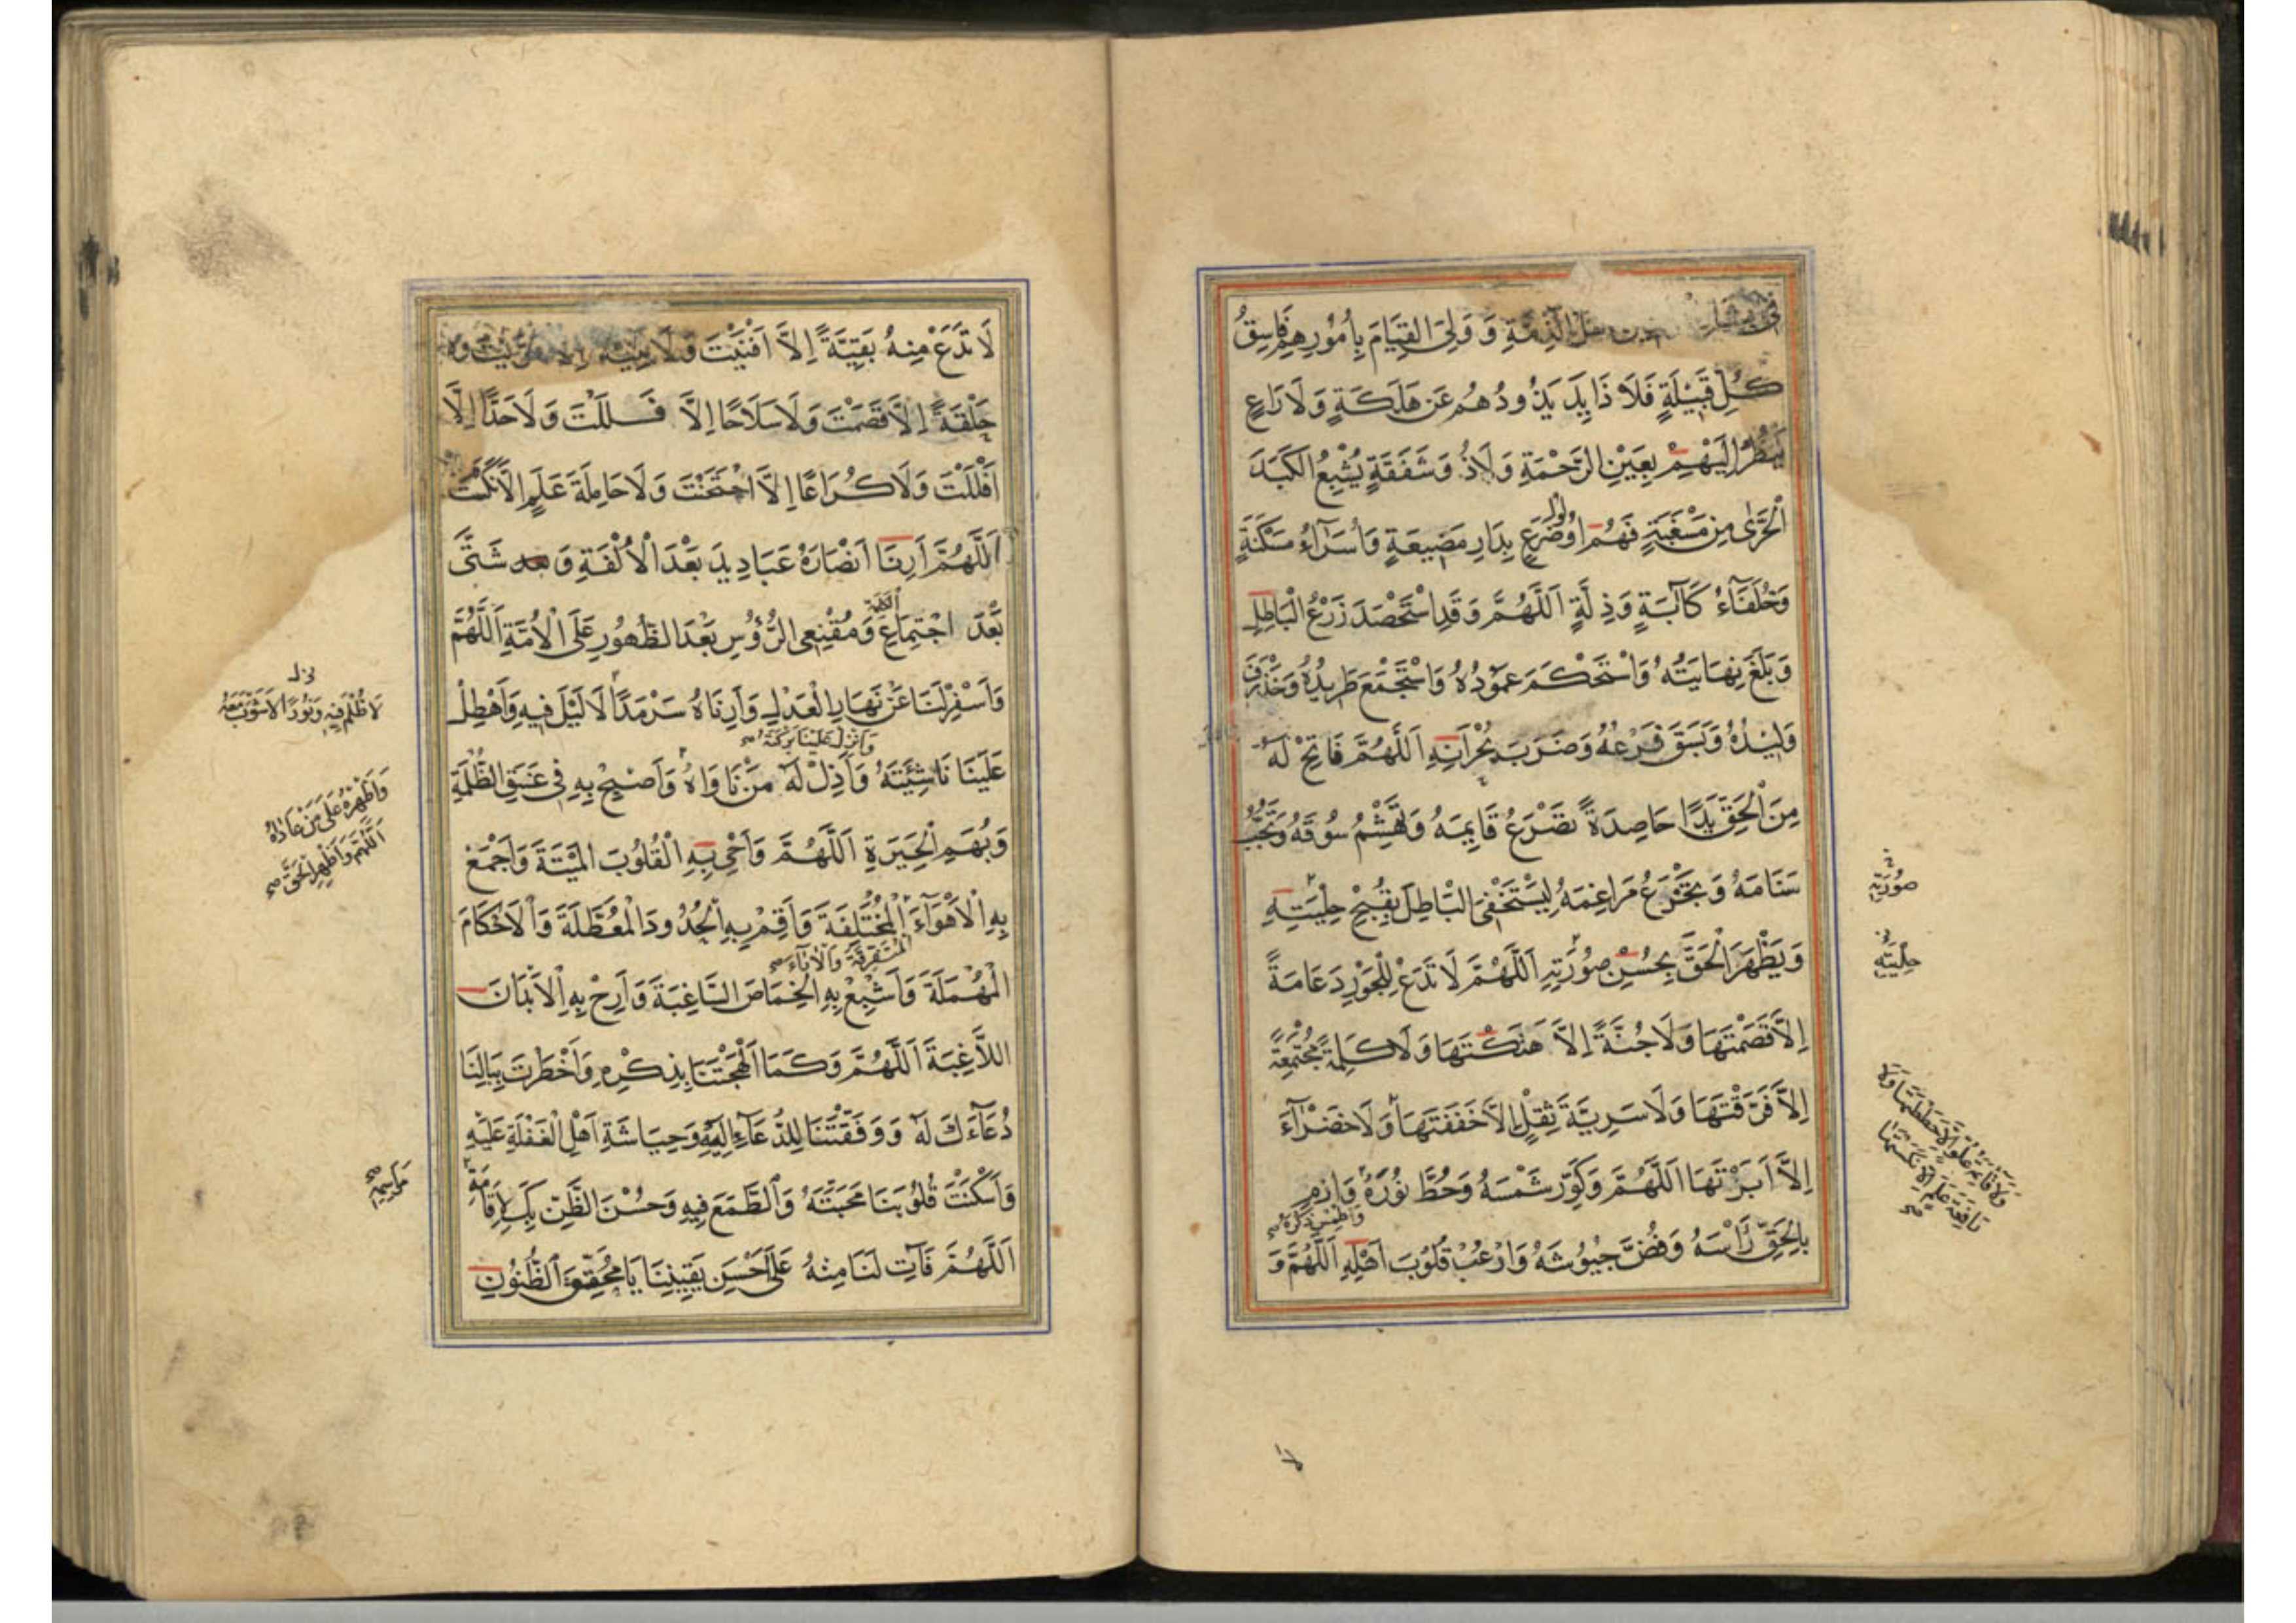 فِي اَبْشَارِ الْمُؤْمِنِينَ اَهْلُ الذِّمَّةِ وَ وَلِيَ الْقِيَامَ بِاُمُورِهِمْ فَاسِقُ
كُلِّ قَبِيْلَةٍ فَلَا ذَايِدَ يَذُودُهُمْ عَنْ هَلَكَةٍ وَلَا رَاعٍ
يَنْظُرُ اِلَيْهِمْ بِعَيْنِ الرَّحْمَةِ وَلَا ذُو شَفَقَةٍ يُشْبِعُ الْكَبَدَ
الْحَرّٰى مِنْ مَسْغَبَةٍ فَهُمْ اُولُو ضَرَعٍ بِدَارِ مَضِيعَةٍ وَاُسَرَآءُ مَسْكَنَةٍ
وَحُلَفَآءُ كَآبَةٍ وَذِلَّةٍ اَللّٰهُمَّ وَقَدِ اسْتَحْصَدَ زَرْعُ الْبَاطِلِ
وَبَلَغَ نِهَايَتُهُ وَاسْتَحْكَمَ عَمُودُهُ وَاسْتَجْمَعَ طَرِيدُهُ وَخَذْرَفَ
وَلِيدُهُ وَبَسَقَ فَرْعُهُ وَضَرَبَ بِحُرَانِهِ اَللّٰهُمَّ فَاتِحْ لَهُ
مِنَ الْحَقِّ يَدًا حَاصِدَةً تَصْرَعُ قَايِمَهُ وَتَهْشِمُ سُوقَهُ وَتَجُبُّ
سَنَامَهُ وَتَجْدَعُ مَرَاغِمَهُ لِيَسْتَخْفِيَ الْبَاطِلُ بِقُبْحِ حِلْيَتِهِ
وَيَظْهَرَ الْحَقُّ بِحُسْنِ صُورَتِهِ اَللّٰهُمَّ لَا تَدَعْ لِلْجَوْرِ دَعَامَةً
اِلَّا قَصَمْتَهَا وَلَا جُنَّةً اِلَّا هَتَكْتَهَا وَلَا كَلِمَةً مُجْتَمِعَةً
اِلَّا فَرَّقْتَهَا وَلَا سَرِيَّةَ ثِقْلٍ اِلَّا خَفَفْتَهَا وَلَا خَضْرَآءَ
اِلَّا اَبَرْتَهَا اَللّٰهُمَّ وَكَوِّرْ شَمْسَهُ وَحُطَّ نُورَهُ وَارْمِ
وَاطْمِسْ ذِكْرَهُ
بِالْحَقِّ رَاْسَهُ وَفُضَّ جُيُوشَهُ وَارْعُبْ قُلُوبَ اَهْلِهِ اَللّٰهُمَّ وَ
صُورَتِهِ
حِلْيَتِهِ
وَلَا قَائِمَةَ عُلُوٍّ اِلَّا حَطَطْتَهَا وَلَا
رَافِعَةَ عَلَمٍ اِلَّا نَكَسْتَهَا
لا
لَا تَدَعْ مِنْهُ بَقِيَّةً اِلَّا اَفْنَيْتَ وَلَا بِنْيَةً اِلَّا سَوَّيْتَ وَلَا
حَلْقَةً اِلَّا قَصَمْتَ وَلَا سَلَاحًا اِلَّا فَلَلْتَ وَلَا حَدًّا اِلَّا
اَفْلَلْتَ وَلَا كُرَاعًا اِلَّا اجْتَحَتْ وَلَا حَامِلَةَ عَلَمٍ اِلَّا نَكَسْتَ
اَللّٰهُمَّ اَرِنَا اَنْصَارَهُ عَبَادِيدَ بَعْدَ الْاُلْفَةِ وَ شَتّٰى
بَعْدَ اجْتِمَاعِ الْكَلِمَةِ وَمُقْنِعِي الرُّؤُسِ بَعْدَ الظُّهُورِ عَلَى الْاُمَّةِ اَللّٰهُمَّ
وَاَسْفِرْ لَنَا عَنْ نَهَارِ الْعَدْلِ وَاَرِنَاهُ سَرْمَدًا لَا لَيْلَ فِيهِ وَاَهْطِلْ
وَاَنْزِلْ عَلَيْنَا بَرَكَتَهُ
عَلَيْنَا نَاشِئَتَهُ وَاَذِلْ لَهُ مَنْ نَاوَاهُ وَاَصْبِحْ بِهِ فِي غَسَقِ الظُّلْمَةِ
وَبُهَمِ الْحَيرَةِ اَللّٰهُمَّ وَاَحْيِ بِهِ الْقُلُوبَ الْمَيْتَةَ وَاجْمَعْ
بِهِ الْاَهْوَآءَ الْمُخْتَلِفَةَ وَاَقِمْ بِهِ الْحُدُودَ الْمُعَطَّلَةَ وَالْاَحْكَامَ
الْمُتَفَرِّقَةَ وَالْاٰرَآءَ
الْمُهْمَلَةَ وَاَشْبِعْ بِهِ الْخِمَاصَ السَّاغِبَةَ وَاَرِحْ بِهِ الْاَبْدَانَ
اللَّاغِبَةَ اَللّٰهُمَّ وَكَمَا اَلْهَجْتَنَا بِذِكْرِهِ وَاَخْطَرْتَ بِبَالِنَا
دُعَآءَكَ لَهُ وَ وَفَّقْتَنَا لِلدُّعَآءِ اِلَيْهِ وَحِيَاشَةِ اَهْلِ الْغَفْلَةِ عَلَيْهِ
وَاَسْكَنْتَ قُلُوبَنَا مَحَبَّتَهُ وَالطَّمَعَ فِيهِ وَحُسْنَ الظَّنِّ بِكَ لِاِقَامَةِ
اَللّٰهُمَّ فَآتِ لَنَا مِنْهُ عَلٰى اَحْسَنِ يَقِينِنَا يَا مُحَقِّقَ الظُّنُونِ
لَا ظُلَمَ فِيهِ وَنُورًا لَا شَوْبَ مَعَهُ
وَاَظْهِرْهُ عَلٰى مَنْ عَادَاهُ
اَللّٰهُمَّ وَاَظْهِرِ الْحَقَّ
مَرَاسِمِهِ